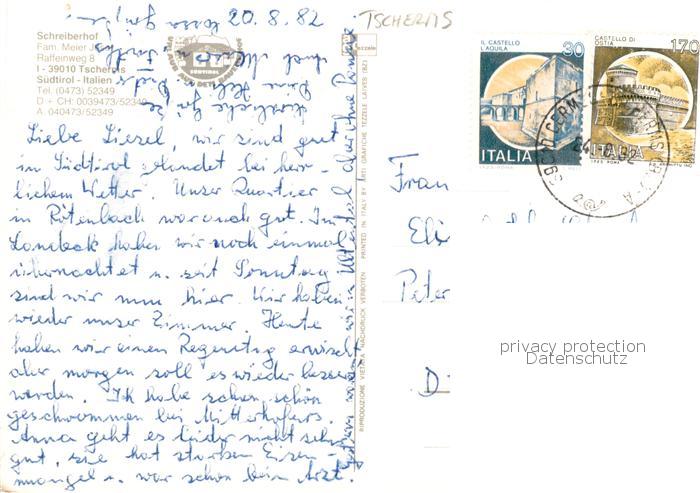 20. 8. 82
TSCHERMS
Schreiberhof
Fam. Meier
Raffeinweg 8
I - 39010 Tscherms
Südtirol - Italien
Tel. (0473) 52349
D + CH: 0039473/52349
A: 040473/52349
SÜDTIROL
IL CASTELLO
L'AQUILA
30
ITALIA
CASTELLO DI
OSTIA
170
ITALIA
Liebe Liesel, wir sind gut
in Südtirol gelandet bei herr-
lichem Wetter. Unser Quartier
in Rötenbach war auch gut. In
Landeck haben wir noch einmal
übernachtet u. seit Sonntag
sind wir nun hier. Wir haben
wieder unser Zimmer. Heute
haben wir einen Regentag erwischt
aber morgen soll es wieder besser
werden. Ich habe schon schön
geschwommen bei Mitterhofers.
Anna geht es leider nicht sehr
gut, sie hat starken Eisen-
mangel u. war schon beim Arzt.
Gestern waren wir in Ultental aber ohne
REPRODUZIONE VIETATA NACHDRUCK VERBOTEN PRINTED IN ITALY BY
Frau
Peter
D
privacy protection
Datenschutz